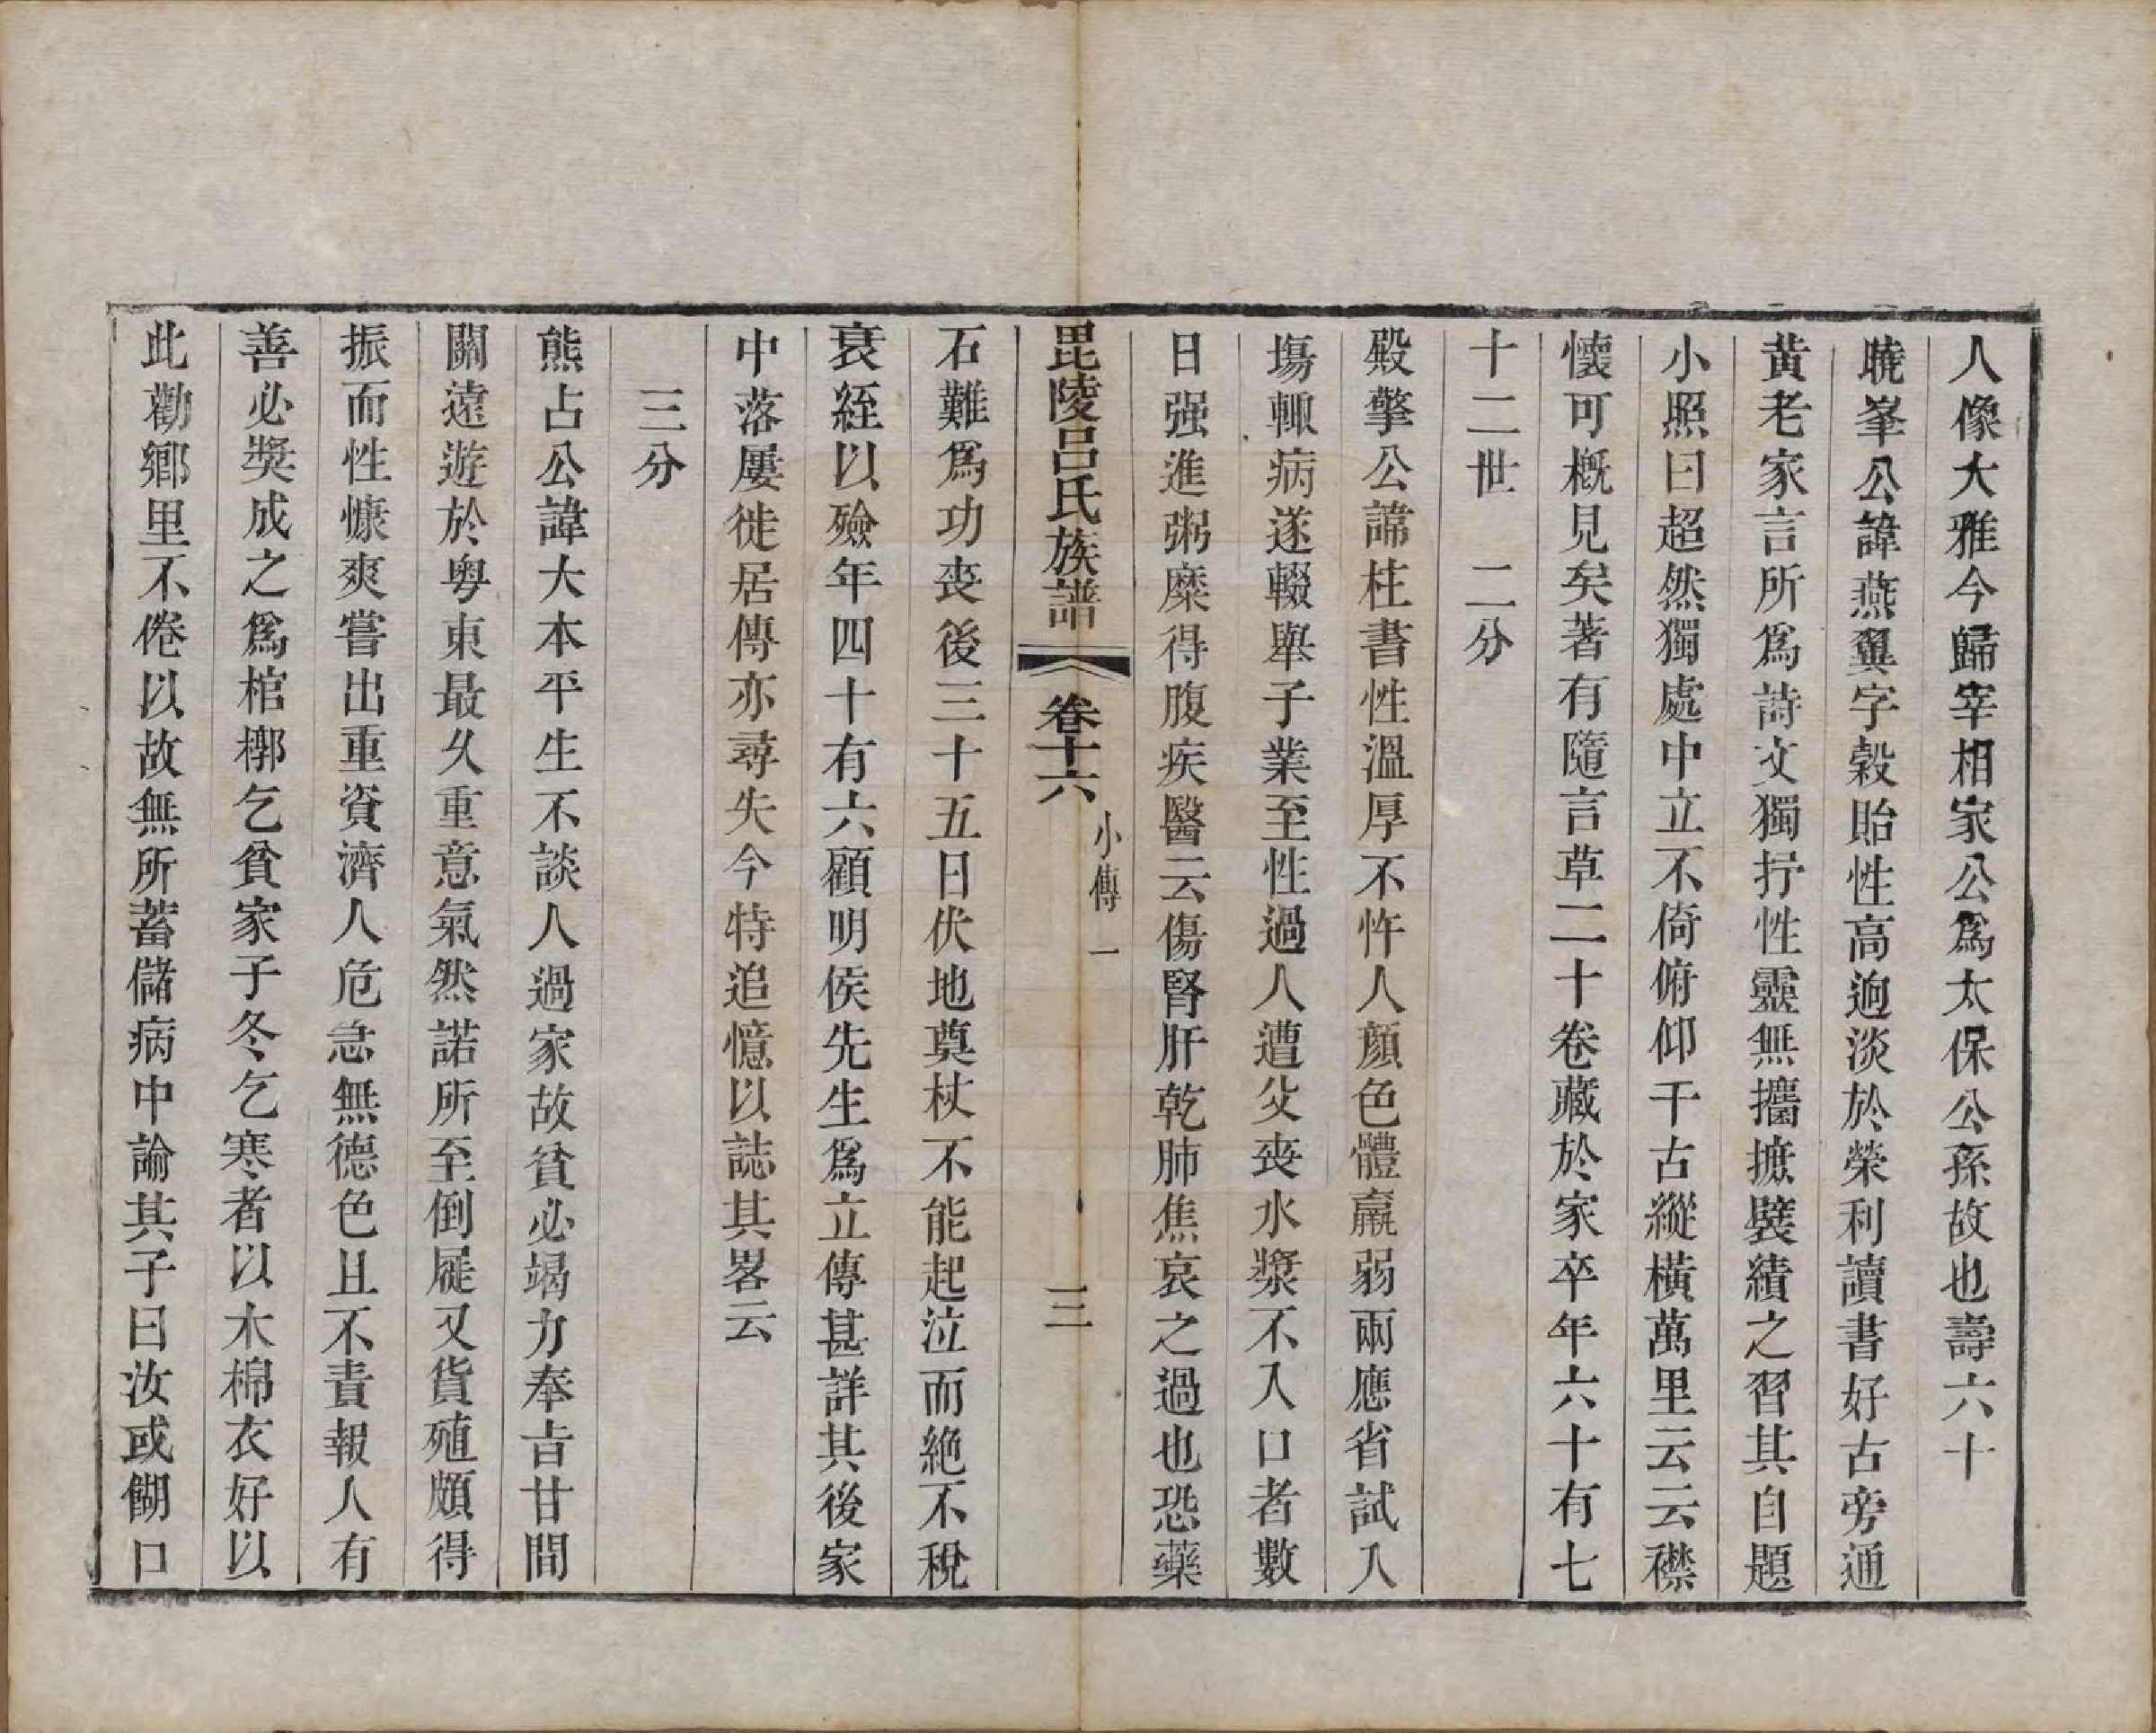 人像大雅今歸宰相家公爲太保公孫故也壽六十
曉峯公諱燕翼字穀貽性高逈淡於榮利讀書好古旁通
黃老家言所爲詩文獨抒性靈無攟摭襞績之習其自題
小照曰超然獨處中立不倚俯仰千古縱橫萬里云云襟
懷可槪見矣著有隨言草二十卷藏於家卒年六十有七
十二世　二分
殿擎公諱柱書性溫厚不忤人顏色體羸弱兩應省試入
塲輒病遂輟舉子業至性過人遭父喪水漿不入口者數
日强進粥糜得腹疾醫云傷腎肝乾肺焦哀之過也恐藥
毘陵呂氏族譜　卷十六　小傳一　三
石難爲功喪後三十五日伏地奠杖不能起泣而絶不稅
衰絰以殮年四十有六顧明侯先生爲立傳甚詳其後家
中落屢徙居傳亦尋失今特追憶以誌其畧云
三分
熊占公諱大本平生不談人過家故貧必竭力奉旨甘間
關遠遊於粤東最久重意氣然諾所至倒屣又貨殖頗得
振而性慷爽嘗出重資濟人危急無德色且不責報人有
善必奬成之爲棺槨乞貧家子冬乞寒者以木棉衣好以
此勸鄉里不倦以故無所蓄儲病中諭其子曰汝或餬口